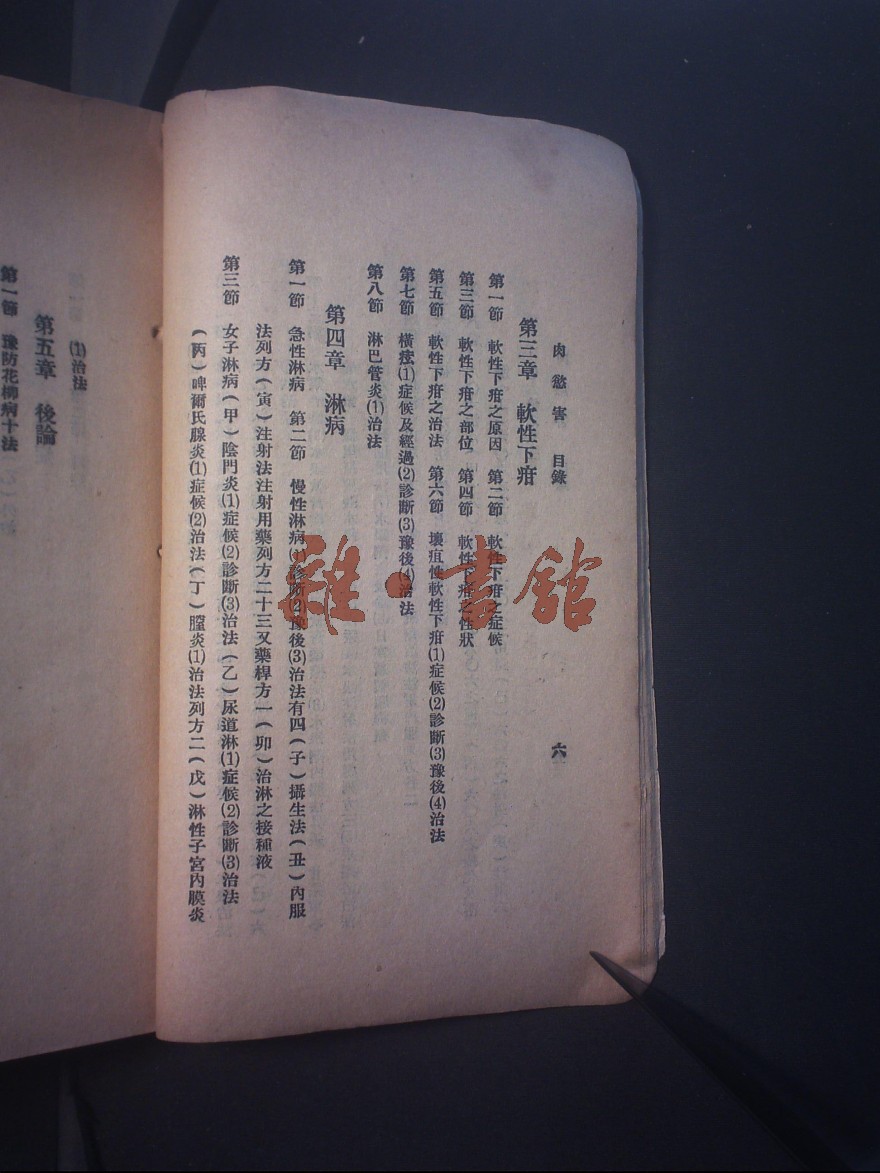 肉慾害 目錄 六
第三章 軟性下疳
第一節 軟性下疳之原因 第二節 軟性下疳之症候
第三節 軟性下疳之部位 第四節 軟性下疳之性狀
第五節 軟性下疳之治法 第六節 壞疽性軟性下疳(1)症候(2)診斷(3)豫後(4)治法
第七節 橫痃(1)症候及經過(2)診斷(3)豫後(4)治法
第八節 淋巴管炎(1)治法
第四章 淋病
第一節 急性淋病 第二節 慢性淋病(1)診斷(2)豫後(3)治法有四(子)攝生法(丑)內服
法列方(寅)注射法注射用藥列方二十三又藥桿方一(卯)治淋之接種液
第三節 女子淋病(甲)陰門炎(1)症候(2)診斷(3)治法(乙)尿道淋(1)症候(2)診斷(3)治法
(丙)啤爾氏腺炎(1)症候(2)治法(丁)膣炎(1)治法列方二(戊)淋性子宮內膜炎
(1)治法
第五章 後論
第一節 豫防花柳病十法
雜·書館